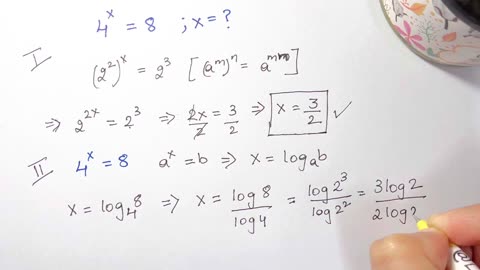 4^x = 8 ; x = ?
I
(2^2)^x = 2^3 [(a^m)^n = a^mn]
⇒ 2^2x = 2^3 ⇒ 2x/2 = 3/2 ⇒ x = 3/2 ✓
II 4^x = 8 a^x = b ⇒ x = log_a b
x = log_4 8 ⇒ x = log 8/log 4 = log 2^3/log 2^2 = 3 log 2/2 log 2